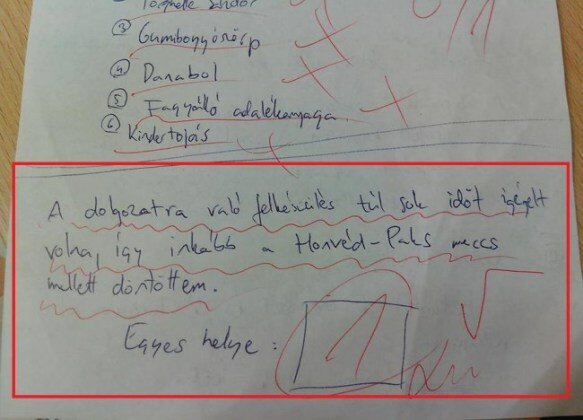 ③ Gumibogyószörp
④ Danabol
⑤ Fagyálló adalékanyaga
⑥ Kindertojás
A dolgozatra való felkészülés túl sok időt igényelt
volna, így inkább a Honvéd-Paks meccs
mellett döntöttem.
Egyes helye:
1